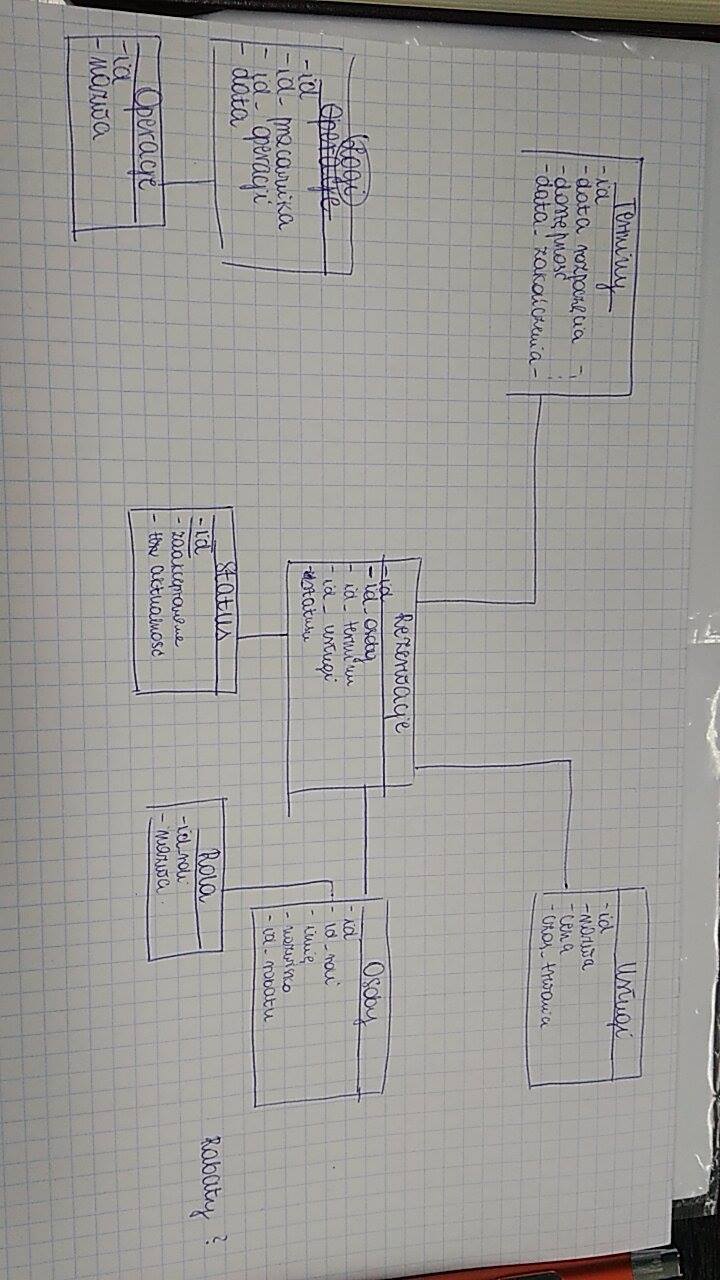 Terminy
-id
-data rozpoczęcia -
-dostępność
-data_zakończenia-
Usługi
-id
-nazwa
-cena
-czas_trwania
Rezerwacje
-id
-id_osoby
-id_terminu
-id_usługi
statusu
Osoby
-id
-id_roli
-imię
-nazwisko
-id_rabatu
Logi
Operacje
-id
-id_pracownika
-id_operacji
-data
Operacje
-id
-nazwa
Status
-id
-zaakceptowane
- aktualność
Rola
-id_roli
-nazwa
Rabaty ?